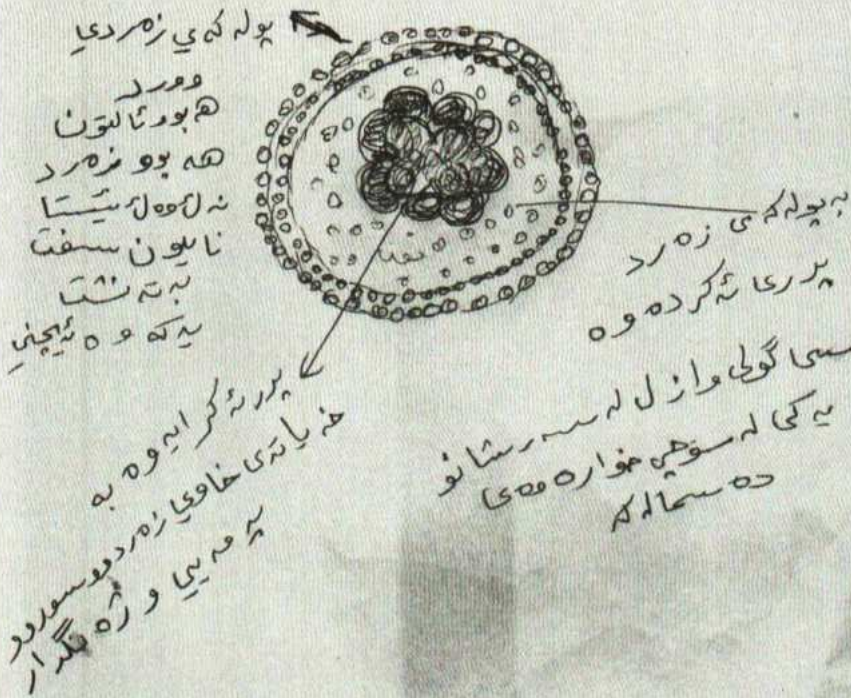 پوله کەی زەردی
وورد
هەبوو ئالتون
هە بوو زەرد
نەل ئێستا
نایلون سفت
بە تەنشتا
یەکەوە ئیچنی
بە پولە کەی زەرد
پڕیان ئەکردەوە
سی گولی وا زل لە سەر شانو
یەکی لە سوچی خوارەوەی
دەسمالەکە
پڕ ئەکرایەوە بە
خەیاتەی خاوی زەردو سورو
پەمەیی و ڕەنگدار